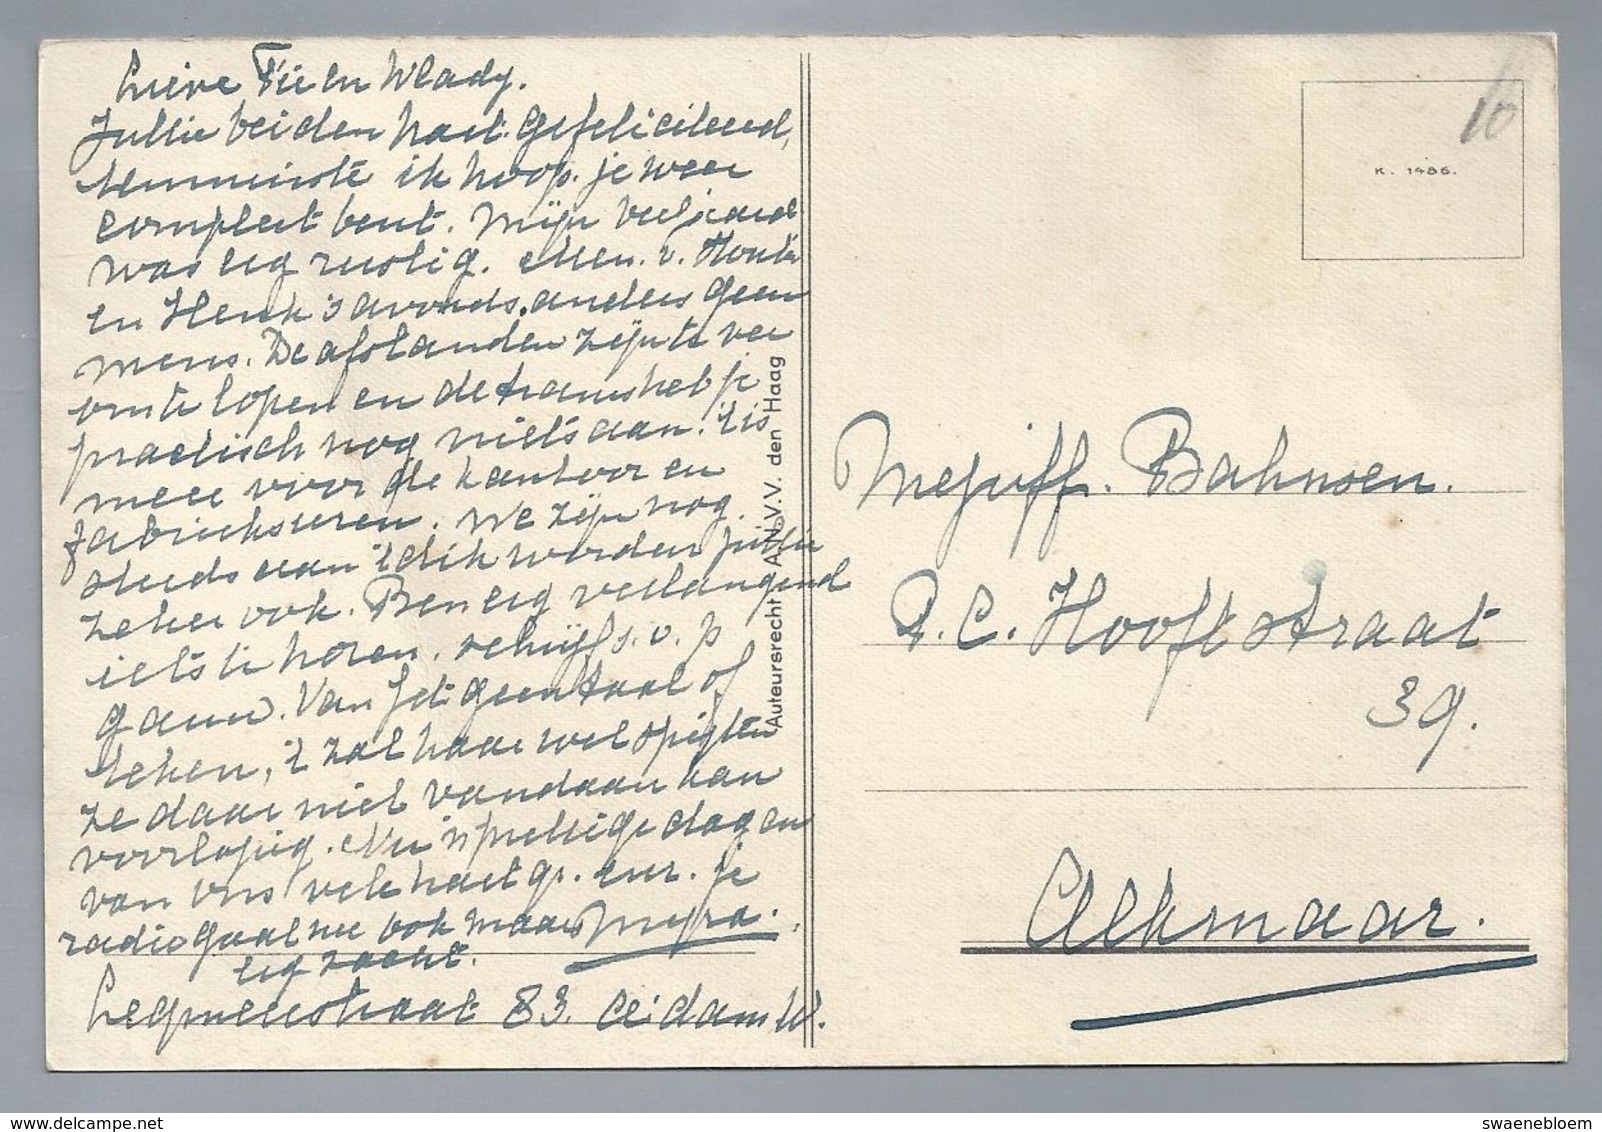 Lieve Fie en Wlady.
Jullie beiden hart. gefeliciteerd,
tenminste ik hoop je weer
compleet bent. Mijn verjaard.
was erg rustig. Mev. v. Houte
en Henk 's avonds, anders geen
mens. De afstanden zijn te ver
om te lopen en de trams heb je
practisch nog niets aan. 't is
meer voor de kantoor en
fabrieksuren. We zijn nog
steeds aan 't dik worden jullie
zeker ook. Ben erg verlangend
iets te horen. schrijf s.v.p
gauw. Van Jet geen taal of
teken, 't zal haar wel spijten
ze daar niet vandaan kan
voorlopig. Nu 'n prettige dag en
van ons vele hart gr. en z. je
radio gaat nu ook maar Myra.
erg zacht.
Legmeerstraat 83. A'dam W.
Auteursrecht A.N.V.V. den Haag
K. 1486.
10
Mejuff. Bahnsen.
P.C. Hooft straat
39.
Alkmaar.
swaenebloem
www.delcampe.net